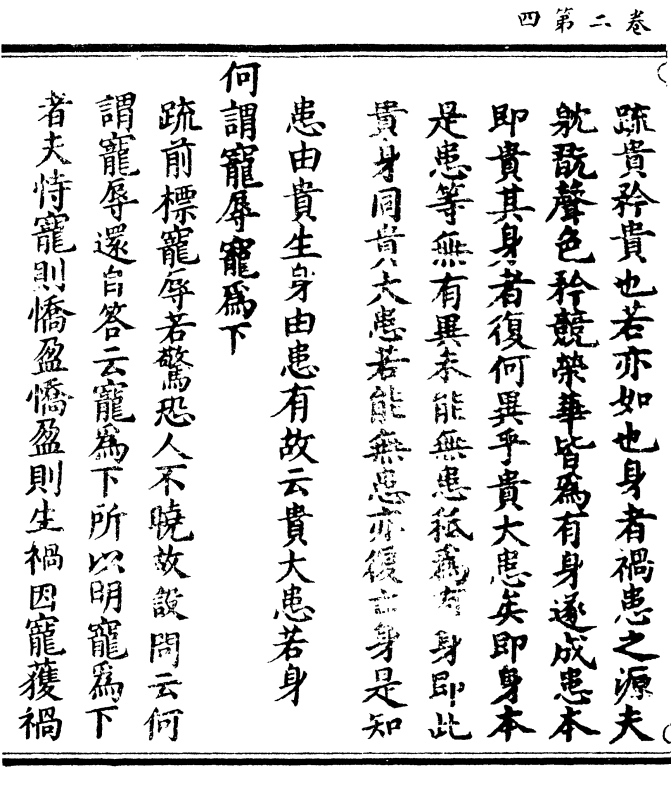 卷二第四
疏貴矜貴也若亦如也身者禍患之源夫
躭翫聲色矜競榮華皆為有身遂成患本
即貴其身者復何異乎貴大患矣即身本
是患等無有異未能無患秪為有身即此
貴身同貴大患若能無患亦復身是知
患由貴生身由患有故云貴大患若身
何謂寵辱寵為下
疏前標寵辱若驚恐人不曉故設問云何
謂寵辱還自答云寵為下所以明寵為下
者夫恃寵則憍盈憍盈則生禍因寵獲禍